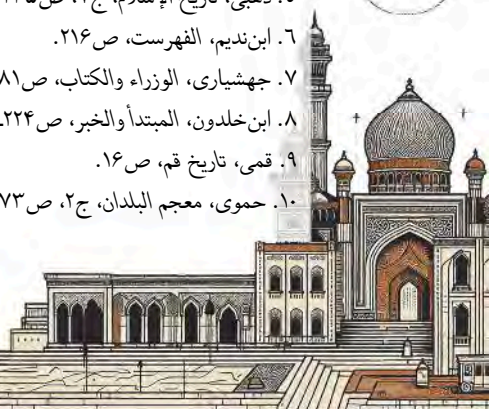 ۶. ابن‌ندیم، الفهرست، ص۲۱۶.
۷. جهشیاری، الوزراء والکتاب، ص۸۱
۸. ابن‌خلدون، المبتدأ والخبر، ص۲۲۴.
۹. قمی، تاریخ قم، ص۱۶.
۱۰. حموی، معجم البلدان، ج۲، ص۷۳